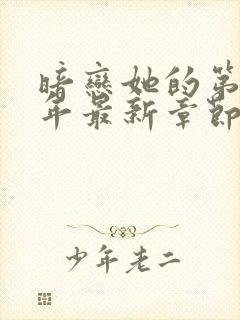 暗戀她的第
年最新章節
少年老二